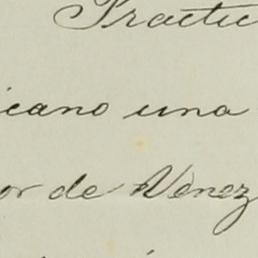 Practic
icano una
or de Venez